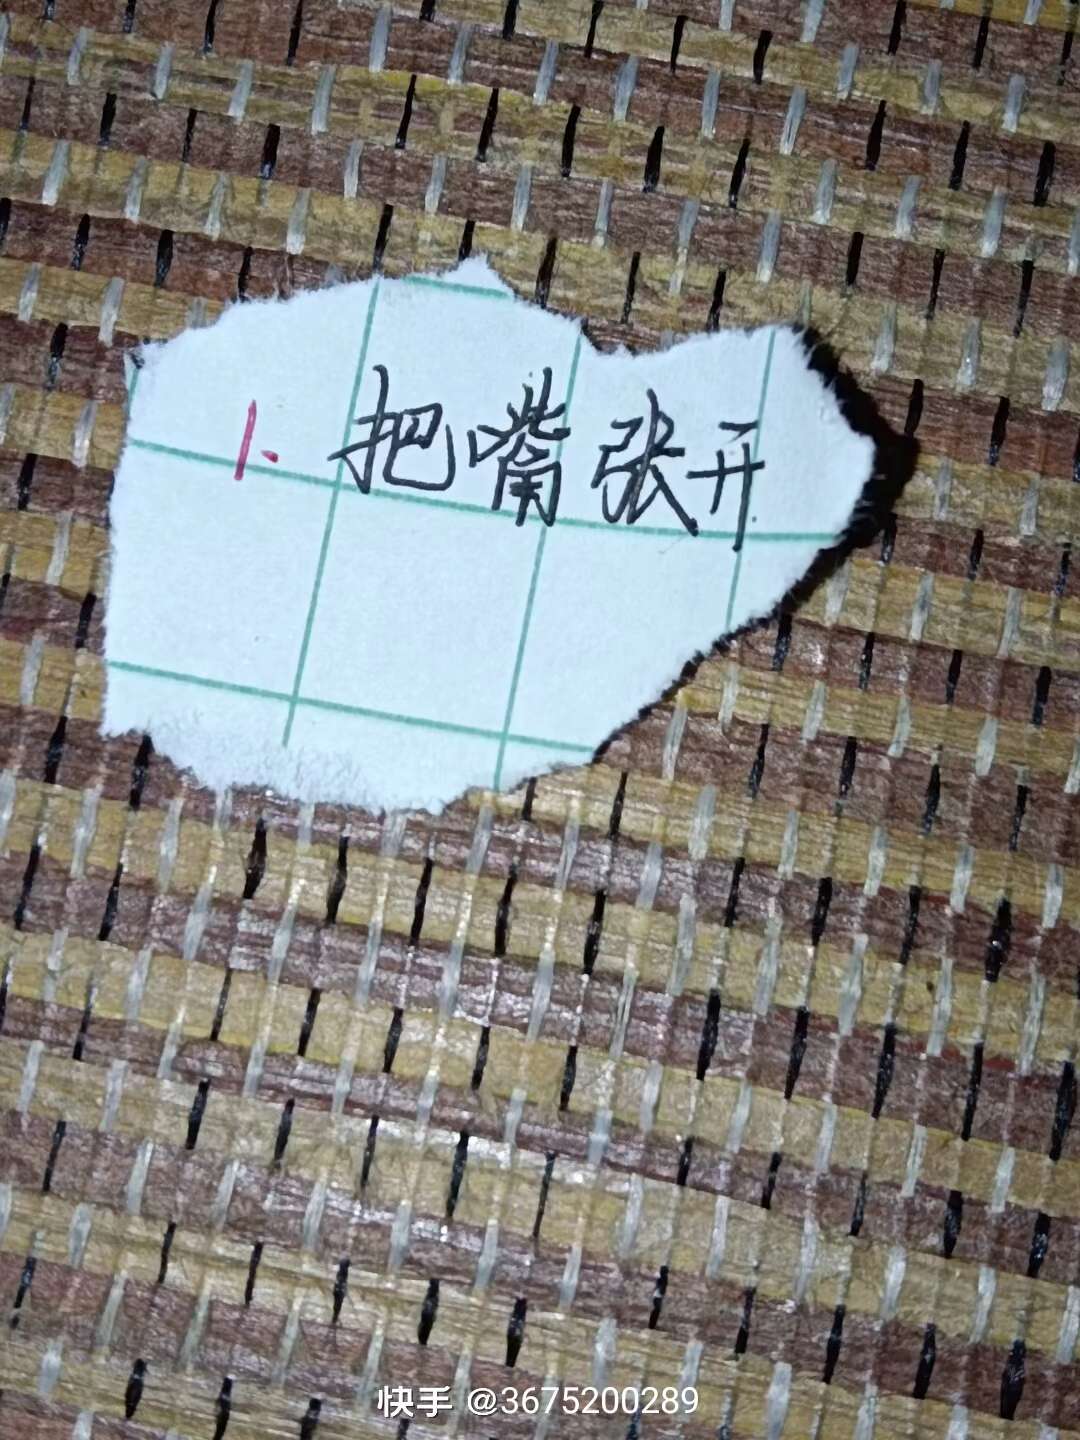 1. 把嘴张开
快手 @3675200289